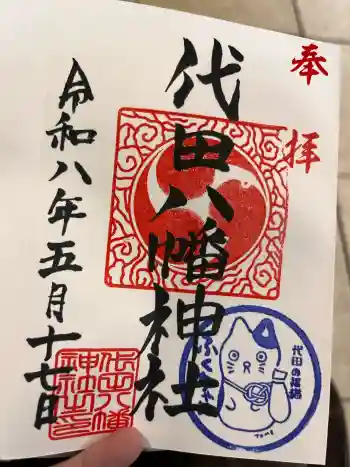 奉拝
代田八幡神社
令和八年五月十七日
代田の福猫
ふくネ
TOME
代田八幡
神社之印